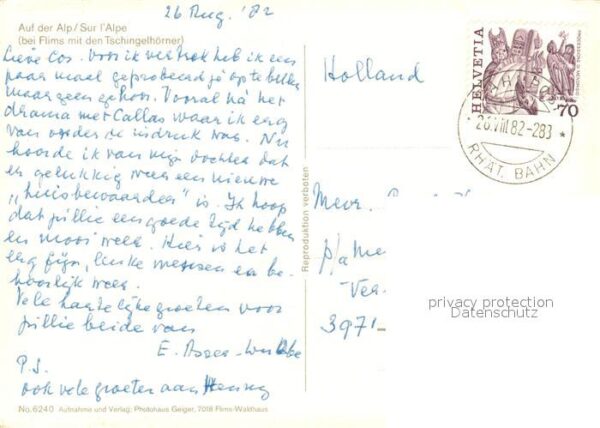 26 Aug. '82
Auf der Alp / Sur l'Alpe
(bei Flims mit den Tschingelhörner)
Lieve Cos. Voor ik vertrok heb ik een
paar maal geprobeerd je op te bellen
maar geen gehoor. Vooral ná het
drama met Callas waar ik erg
van onder de indruk was. Nu
hoorde ik van mijn dochter dat
er gelukkig weer een nieuwe
"huisbewaarder" is. Ik hoop
dat jullie een goede tijd hebben
en mooi weer. Hier is het
erg fijn, leuke mensen en be-
hoorlijk weer.
Vele hartelijke groeten voor
jullie beide van
E. Asser-
P.S.
ook vele groeten aan Henny
No. 6240 Aufnahme und Verlag: Photohaus Geiger, 7018 Flims-Waldhaus
Reproduktion verboten
Holland
HELVETIA
70
26.VIII.82-283
RHÄT. BAHN
Mevr.
p/a Me
Ver.
3971-
privacy protection
Datenschutz